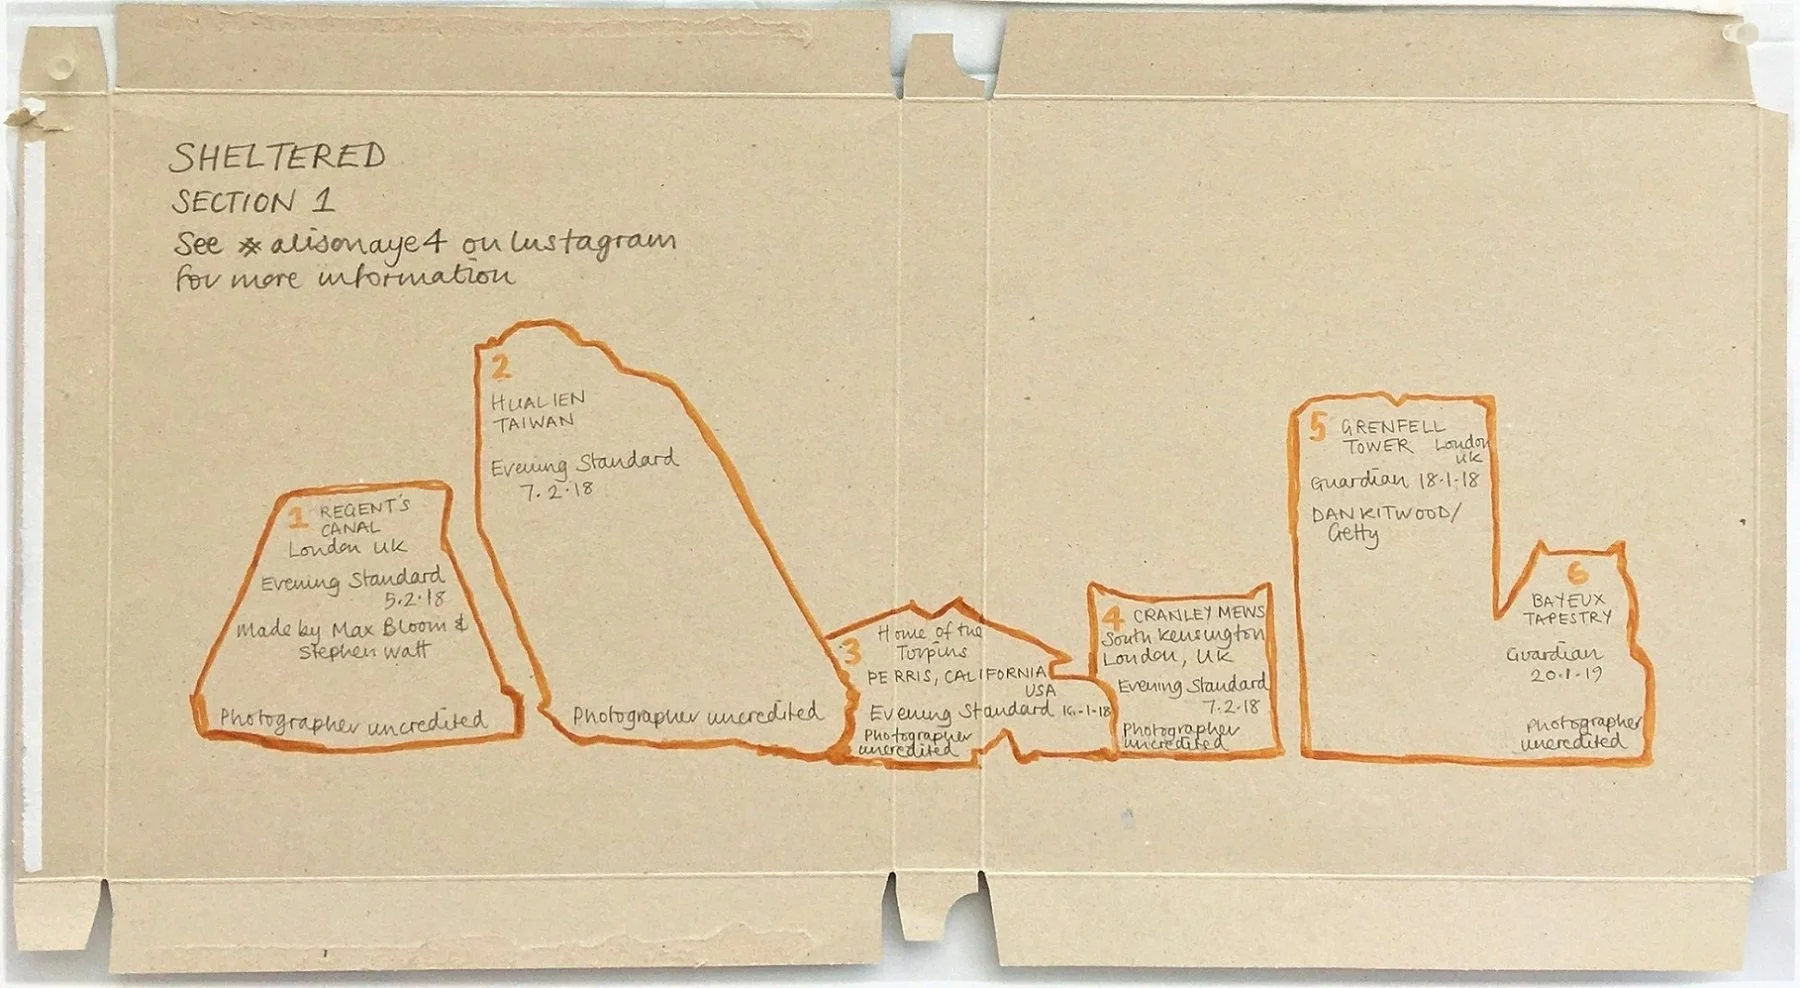 SHELTERED
SECTION 1
See # alisonaye4 on Instagram
for more information
1 REGENT'S
CANAL
London UK
Evening Standard
5.2.18
Made by Max Bloom &
Stephen Watt
Photographer uncredited
2
HUALIEN
TAIWAN
Evening Standard
7.2.18
Photographer uncredited
3
Home of the
Turpins
PERRIS, CALIFORNIA
USA
Evening Standard 16-1-18
Photographer
uncredited
4 CRANLEY MEWS
South Kensington
London, UK
Evening Standard
7.2.18
Photographer
uncredited
5 GRENFELL
TOWER London
UK
Guardian 18.1.18
DAN KITWOOD/
Getty
6
BAYEUX
TAPESTRY
Guardian
20.1.19
Photographer
uncredited